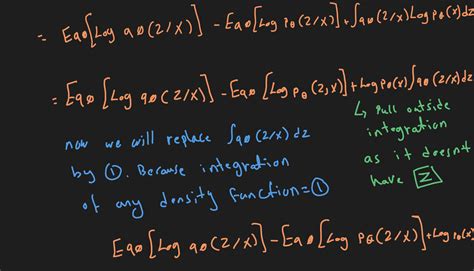 = Eqø[Log qø(z/x)] - Eqø[Log pθ(z/x)] + ∫qø(z/x) Log pθ(x)dz
= Eqø[Log qø(z/x)] - Eqø[Log pθ(z,x)] + Log pθ(x)∫qø(z/x)dz
↳ Pull outside
integration
as it doesn't
have Z
now we will replace ∫qø(z/x)dz
by ①. Because integration
of any density function = ①
Eqø[Log qø(z/x)] - Eqø[Log pθ(z/x)] + Log pθ(x)